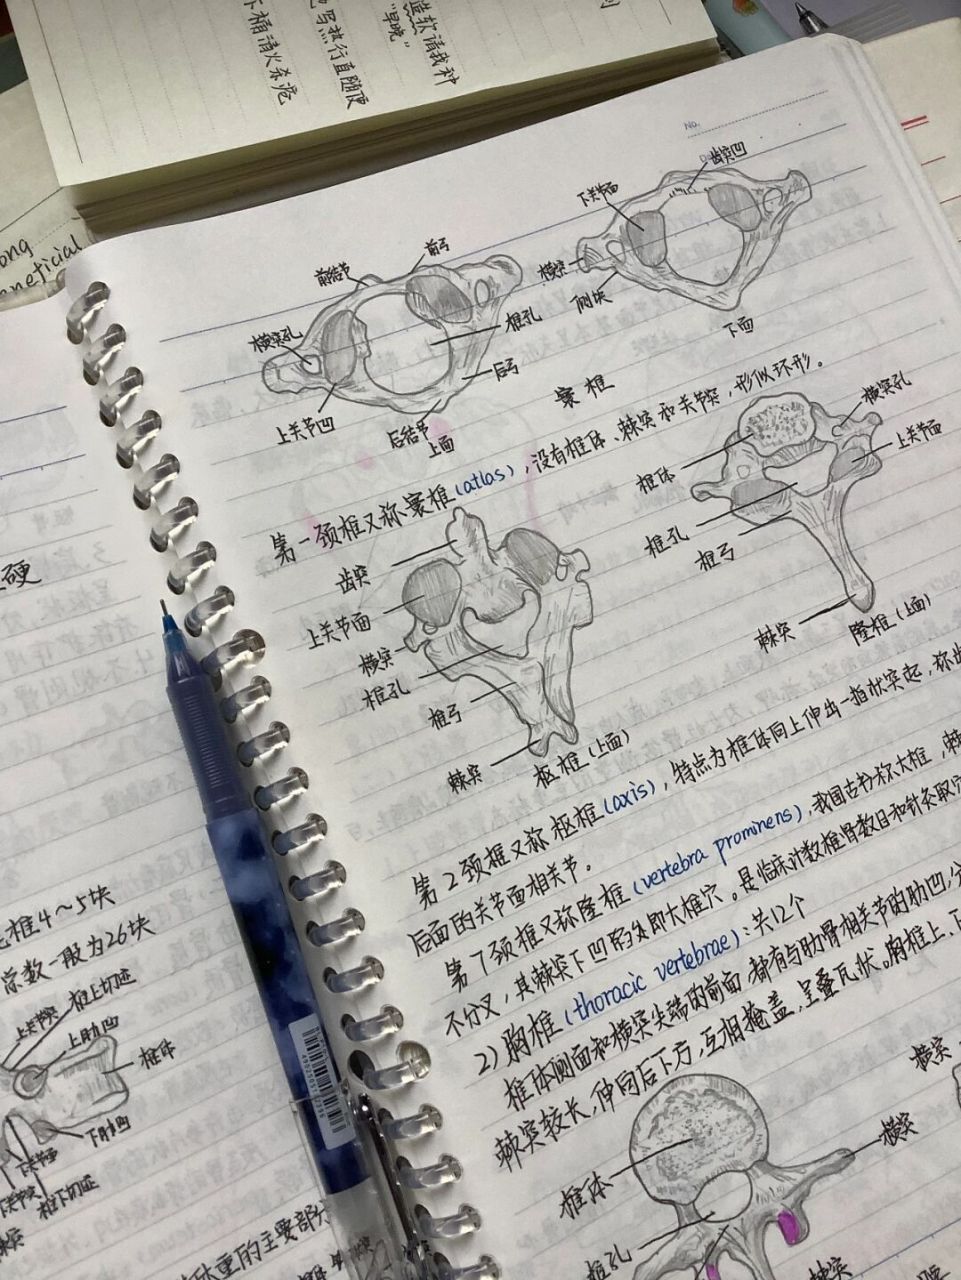 造软请我种
"早晚"
写热行直随便
下桶请火杀疮
ong
neficial
No.
齿突凹
下关节面
横突
侧块
下面
前弓
前结节
横突孔
椎孔
后弓
上关节凹
后结节
上面
寰椎
第一颈椎又称寰椎(atlas),没有椎体、棘突和关节突,形似环形。
横突孔
上关节面
椎体
椎孔
椎弓
棘突
隆椎(上面)
齿突
上关节面
横突
椎孔
椎弓
棘突
枢椎(上面)
第2颈椎又称枢椎(axis),特点为椎体向上伸出一指状突起,称
后面的关节面相关节。
第7颈椎又称隆椎(vertebra prominens),我国古称大椎,棘
不分叉,其棘突下凹陷处即大椎穴。是临床计数椎骨数目和针灸取穴
2)胸椎(thoracic vertebrae):共12个
椎体侧面和横突尖端的前面,都有与肋骨相关节的肋凹,分
棘突较长,伸向后下方,互相掩盖,呈叠瓦状。胸椎上、下
横突
椎体
横突
椎孔
棘突
硬
椎4~5块
总数一般为26块
上关节突
椎上切迹
上肋凹
椎体
下肋凹
椎下切迹
体重的主要部分